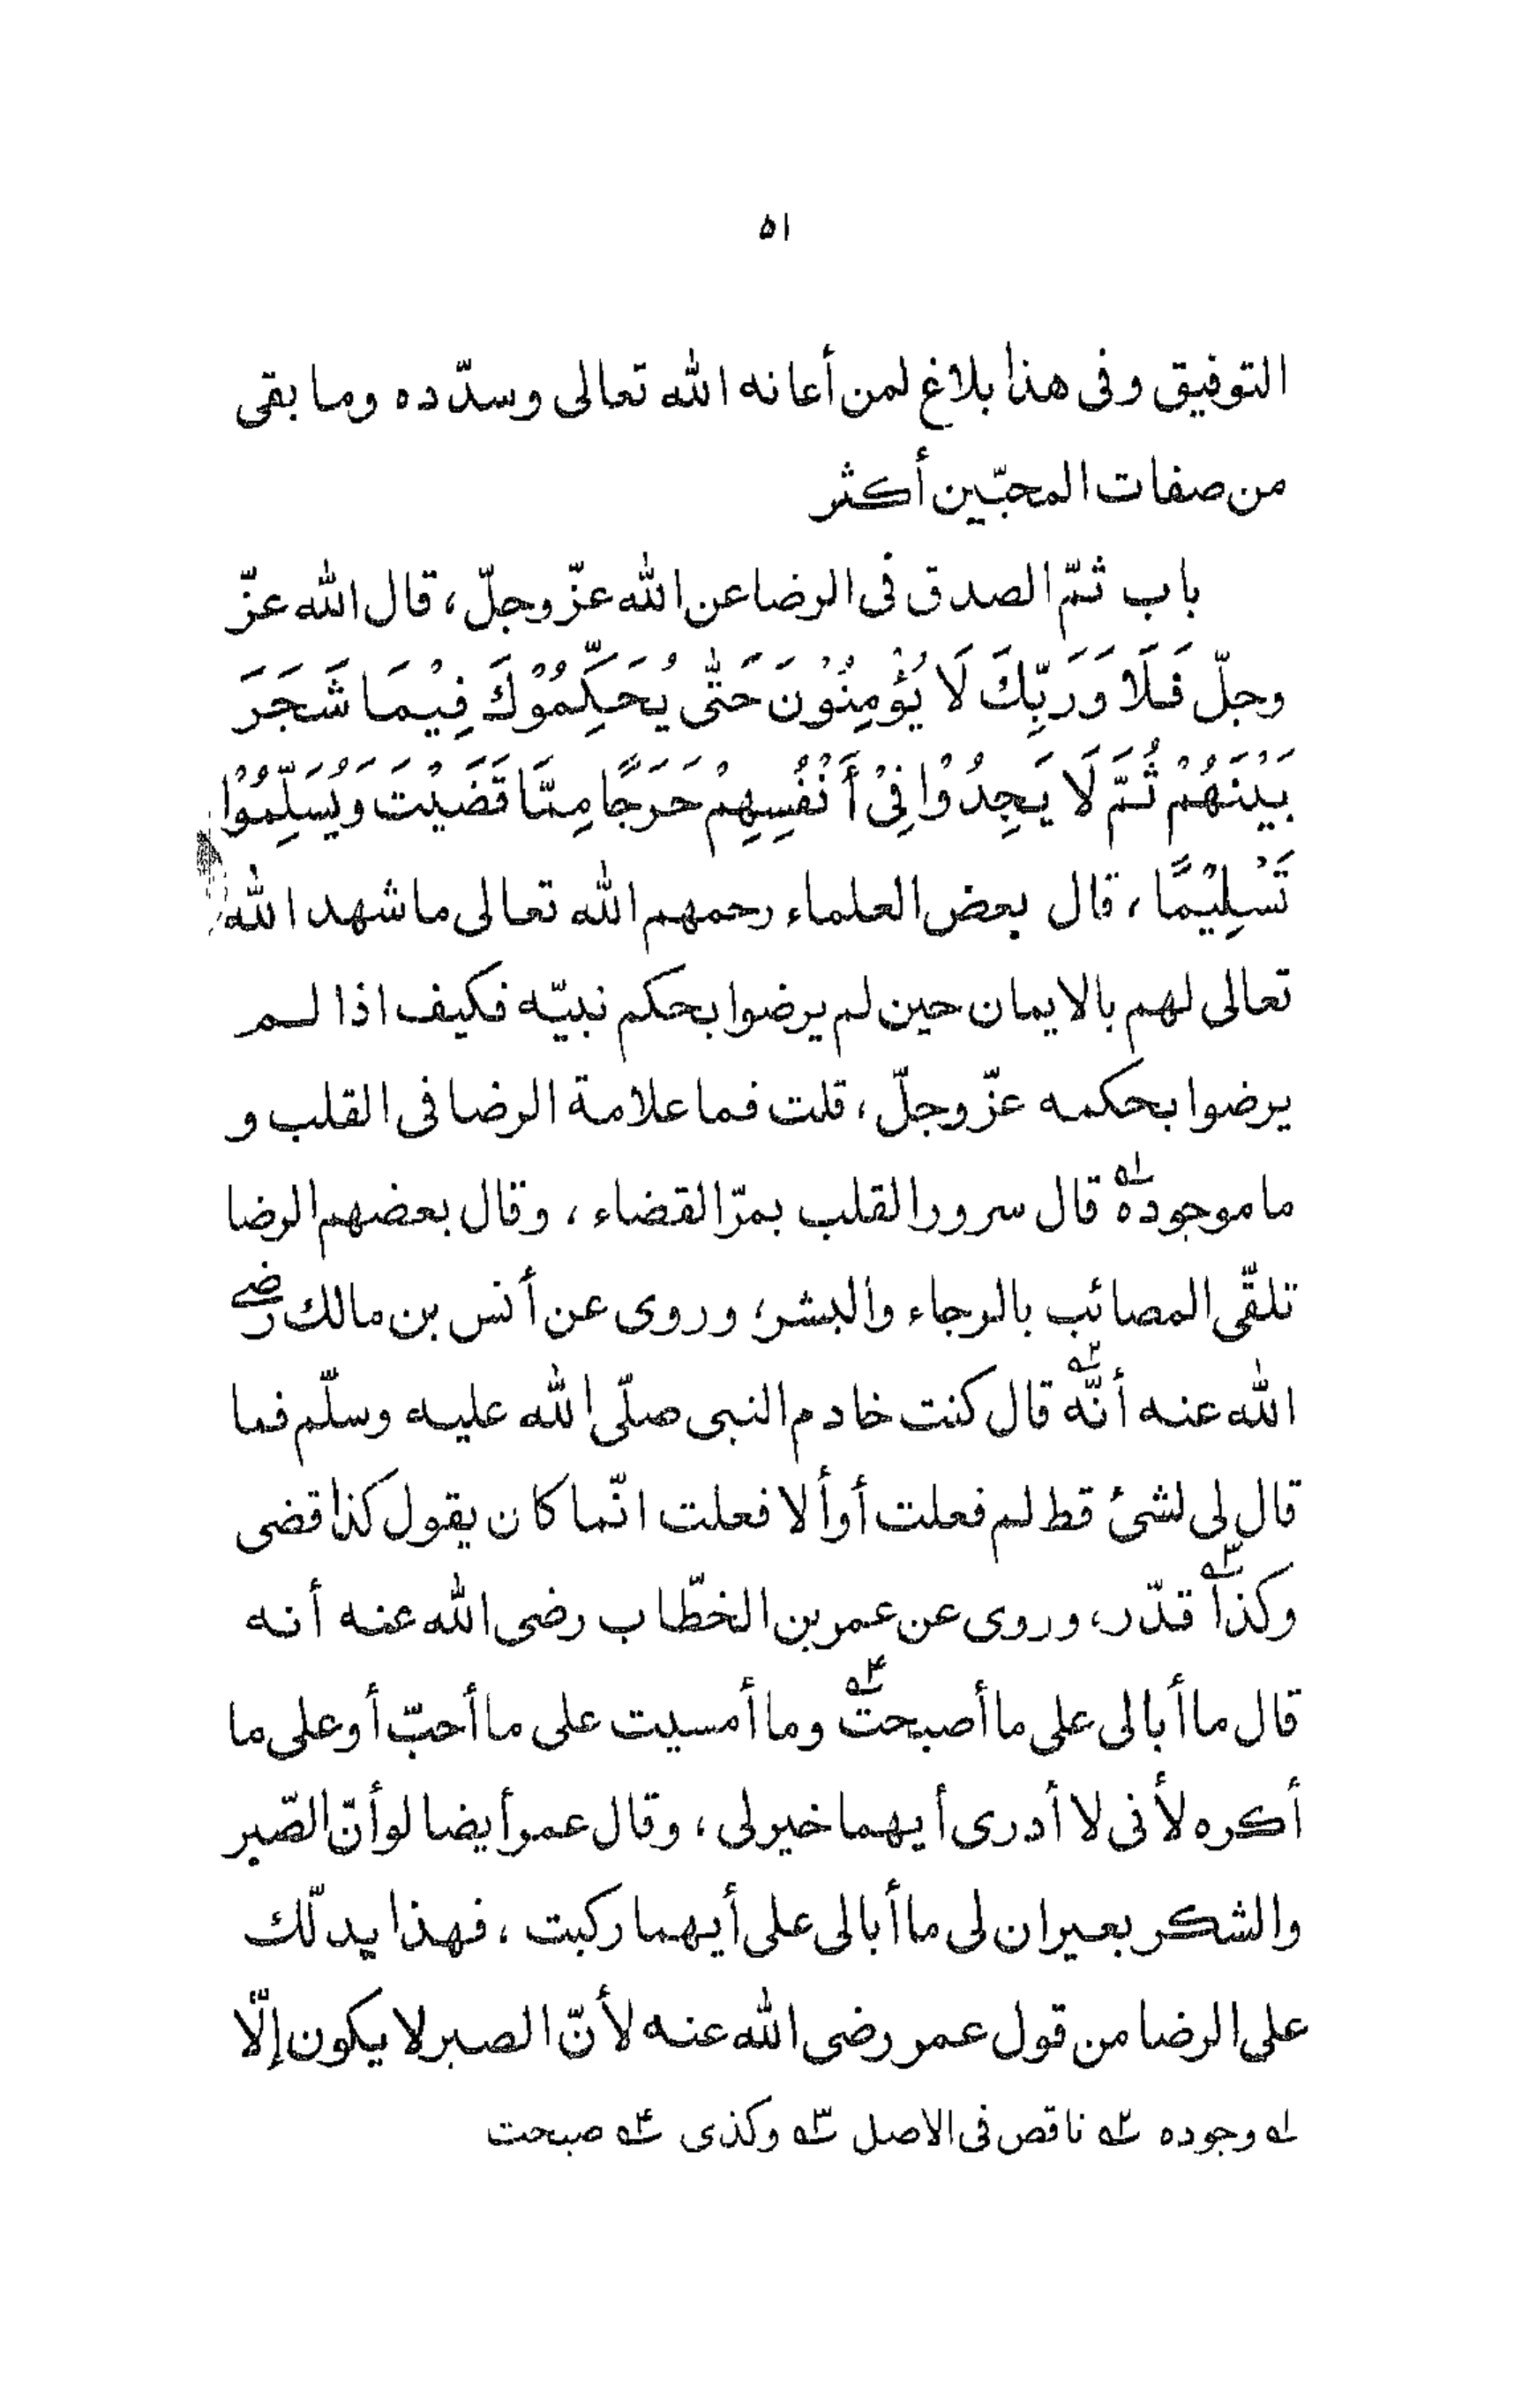 ٥١
التوفيق وفى هذا بلاغ لمن أعانه الله تعالى وسدّده وما بقى
من صفات المحبّين أكثر
باب ثمّ الصدق فى الرضا عن الله عزّ وجلّ، قال الله عزّ
وجلّ فَلَا وَرَبِّكَ لَا يُؤْمِنُوْنَ حَتّٰى يُحَكِّمُوْكَ فِيْمَا شَجَرَ
بَيْنَهُمْ ثُمَّ لَا يَجِدُوْا فِىْ أَنْفُسِهِمْ حَرَجًا مِمَّا قَضَيْتَ وَيُسَلِّمُوْا
تَسْلِيْمًا، قال بعض العلماء رحمهم الله تعالى ما شهد الله
تعالى لهم بالايمان حين لم يرضوا بحكم نبيّه فكيف اذا لم
يرضوا بحكمه عزّ وجلّ، قلت فما علامة الرضا فى القلب و
ما موجوده١ قال سرور القلب بمرّ القضاء، وقال بعضهم الرضا
تلقّى المصائب بالرجاء والبشر، وروى عن أنس بن مالك رضى
الله عنه أنّه٢ قال كنت خادم النبى صلّى الله عليه وسلّم فما
قال لى لشئ قط لم فعلت أو ألا فعلت انّما كان يقول كذا قضى
وكذا٣ قدّر، وروى عن عمر بن الخطّاب رضى الله عنه أنه
قال ما أبالى على ما أصبحت٤ وما أمسيت على ما أحبّ أو على ما
أكره لأنى لا أدرى أيهما خير لى، وقال عمر أيضا لو أنّ الصّبر
والشكر بعيران لى ما أبالى على أيهما ركبت، فهذا يدلّك
على الرضا من قول عمر رضى الله عنه لأنّ الصبر لا يكون إلّا
١ وجوده ٢ ناقص فى الاصل ٣ وكذى ٤ صبحت